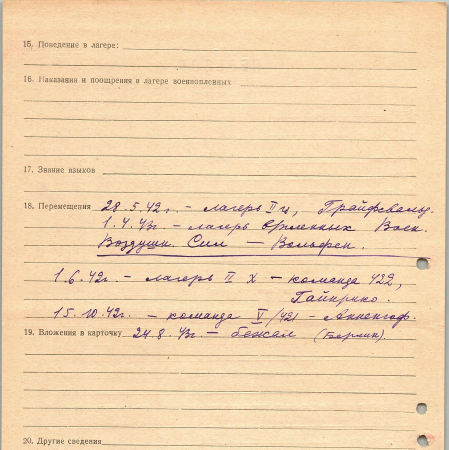 15. Поведение в лагере:
16. Наказания и поощрения в лагере военнопленных
17. Звание языков
18. Перемещения 28.5.42г. - лагерь II ц, Грайфсвальд.
1.4.43г - лагерь Военн.
Воздушн. Сил — Вольфен.
1.6.42г. - лагерь II X - команда 422,
15.10.42г. - команда V/421 - Анненгоф.
19. Вложения в карточку 24.8.43г. - бежал (Берлин).
20. Другие сведения